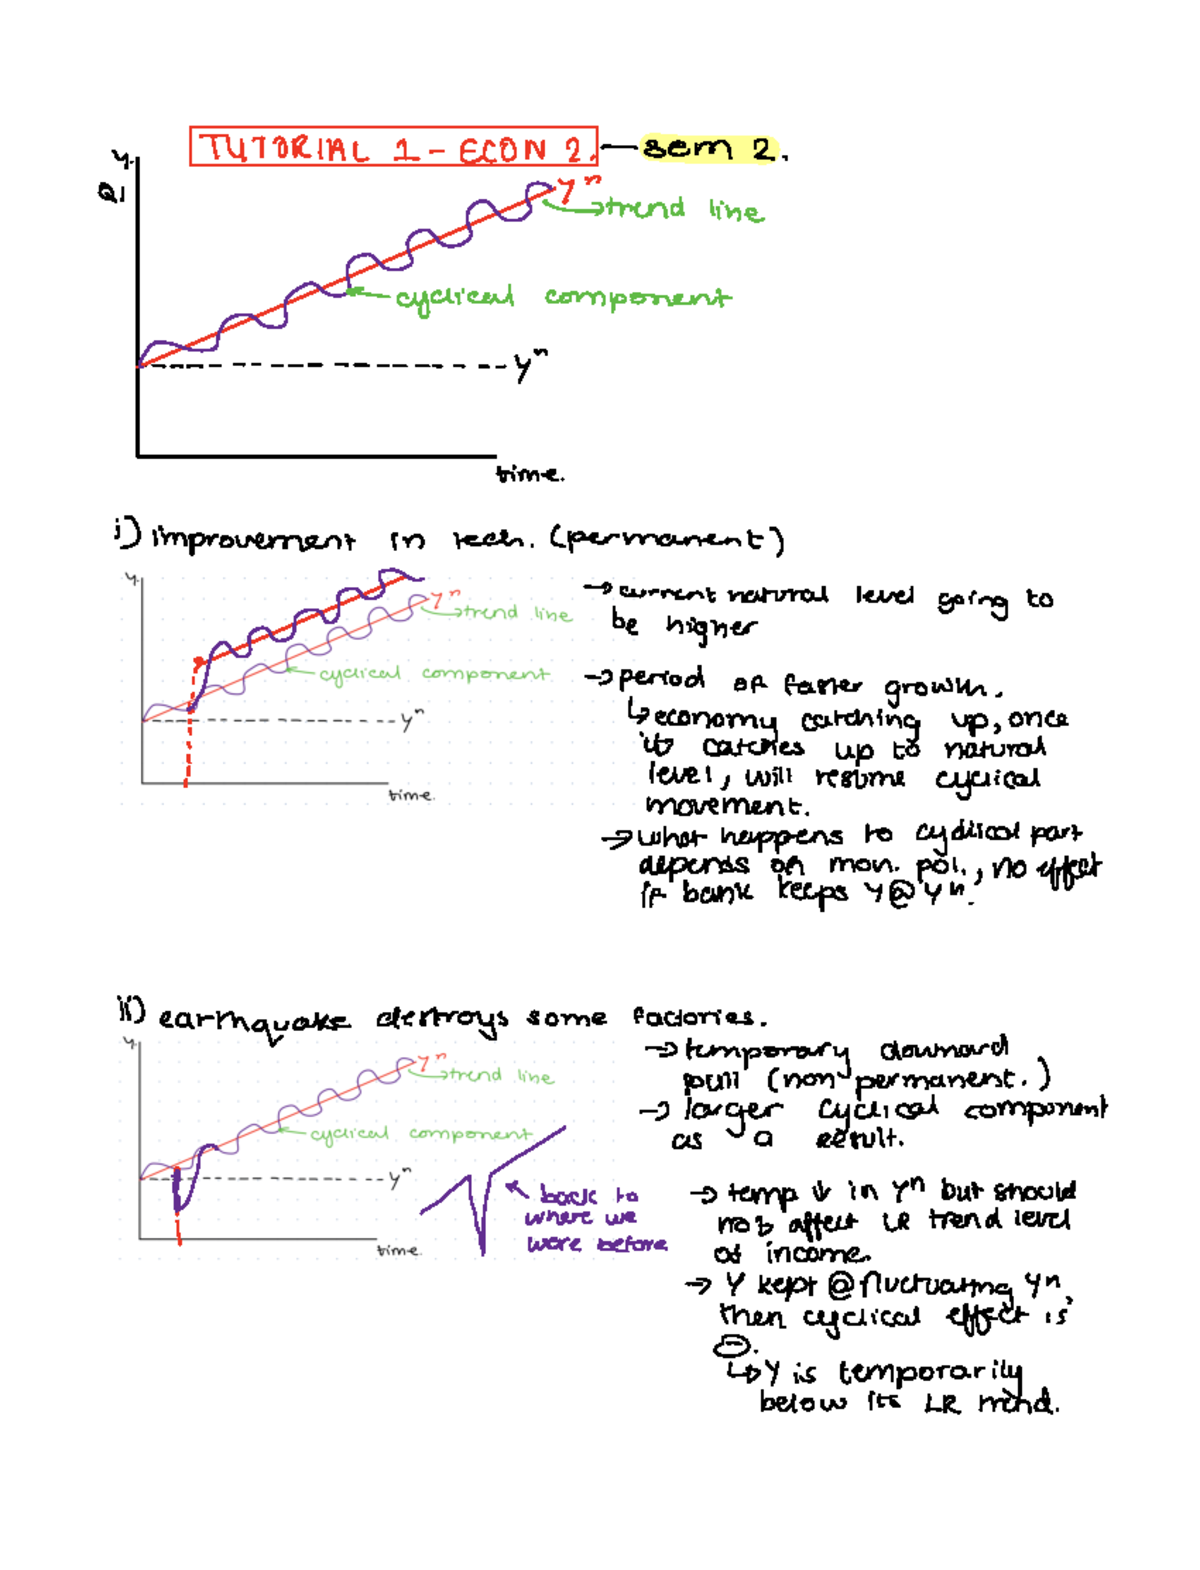 TUTORIAL 1 - ECON 2. — sem 2.
Y.
Q1
Yⁿ
→ trend line
← cyclical component
yⁿ
time.
i) improvement in tech. (permanent)
Y.
Yⁿ
→ trend line
← cyclical component
yⁿ
time.
→ current natural level going to
be higher
→ period of faster growth.
↳ economy catching up, once
it catches up to natural
level, will resume cyclical
movement.
→ what happens to cyclical part
depends on mon. pol., no effect
if bank keeps Y @ Yⁿ.
ii) earthquake destroys some factories.
Y.
Yⁿ
→ trend line
← cyclical component
yⁿ
time.
back to
where we
were before
→ temporary downward
pull (non-permanent.)
→ larger cyclical component
as a result.
→ temp ↓ in Yⁿ but should
not affect LR trend level
of income.
→ Y kept @ fluctuating Yⁿ,
then cyclical effect is
⊖.
↳ Y is temporarily
below its LR trend.